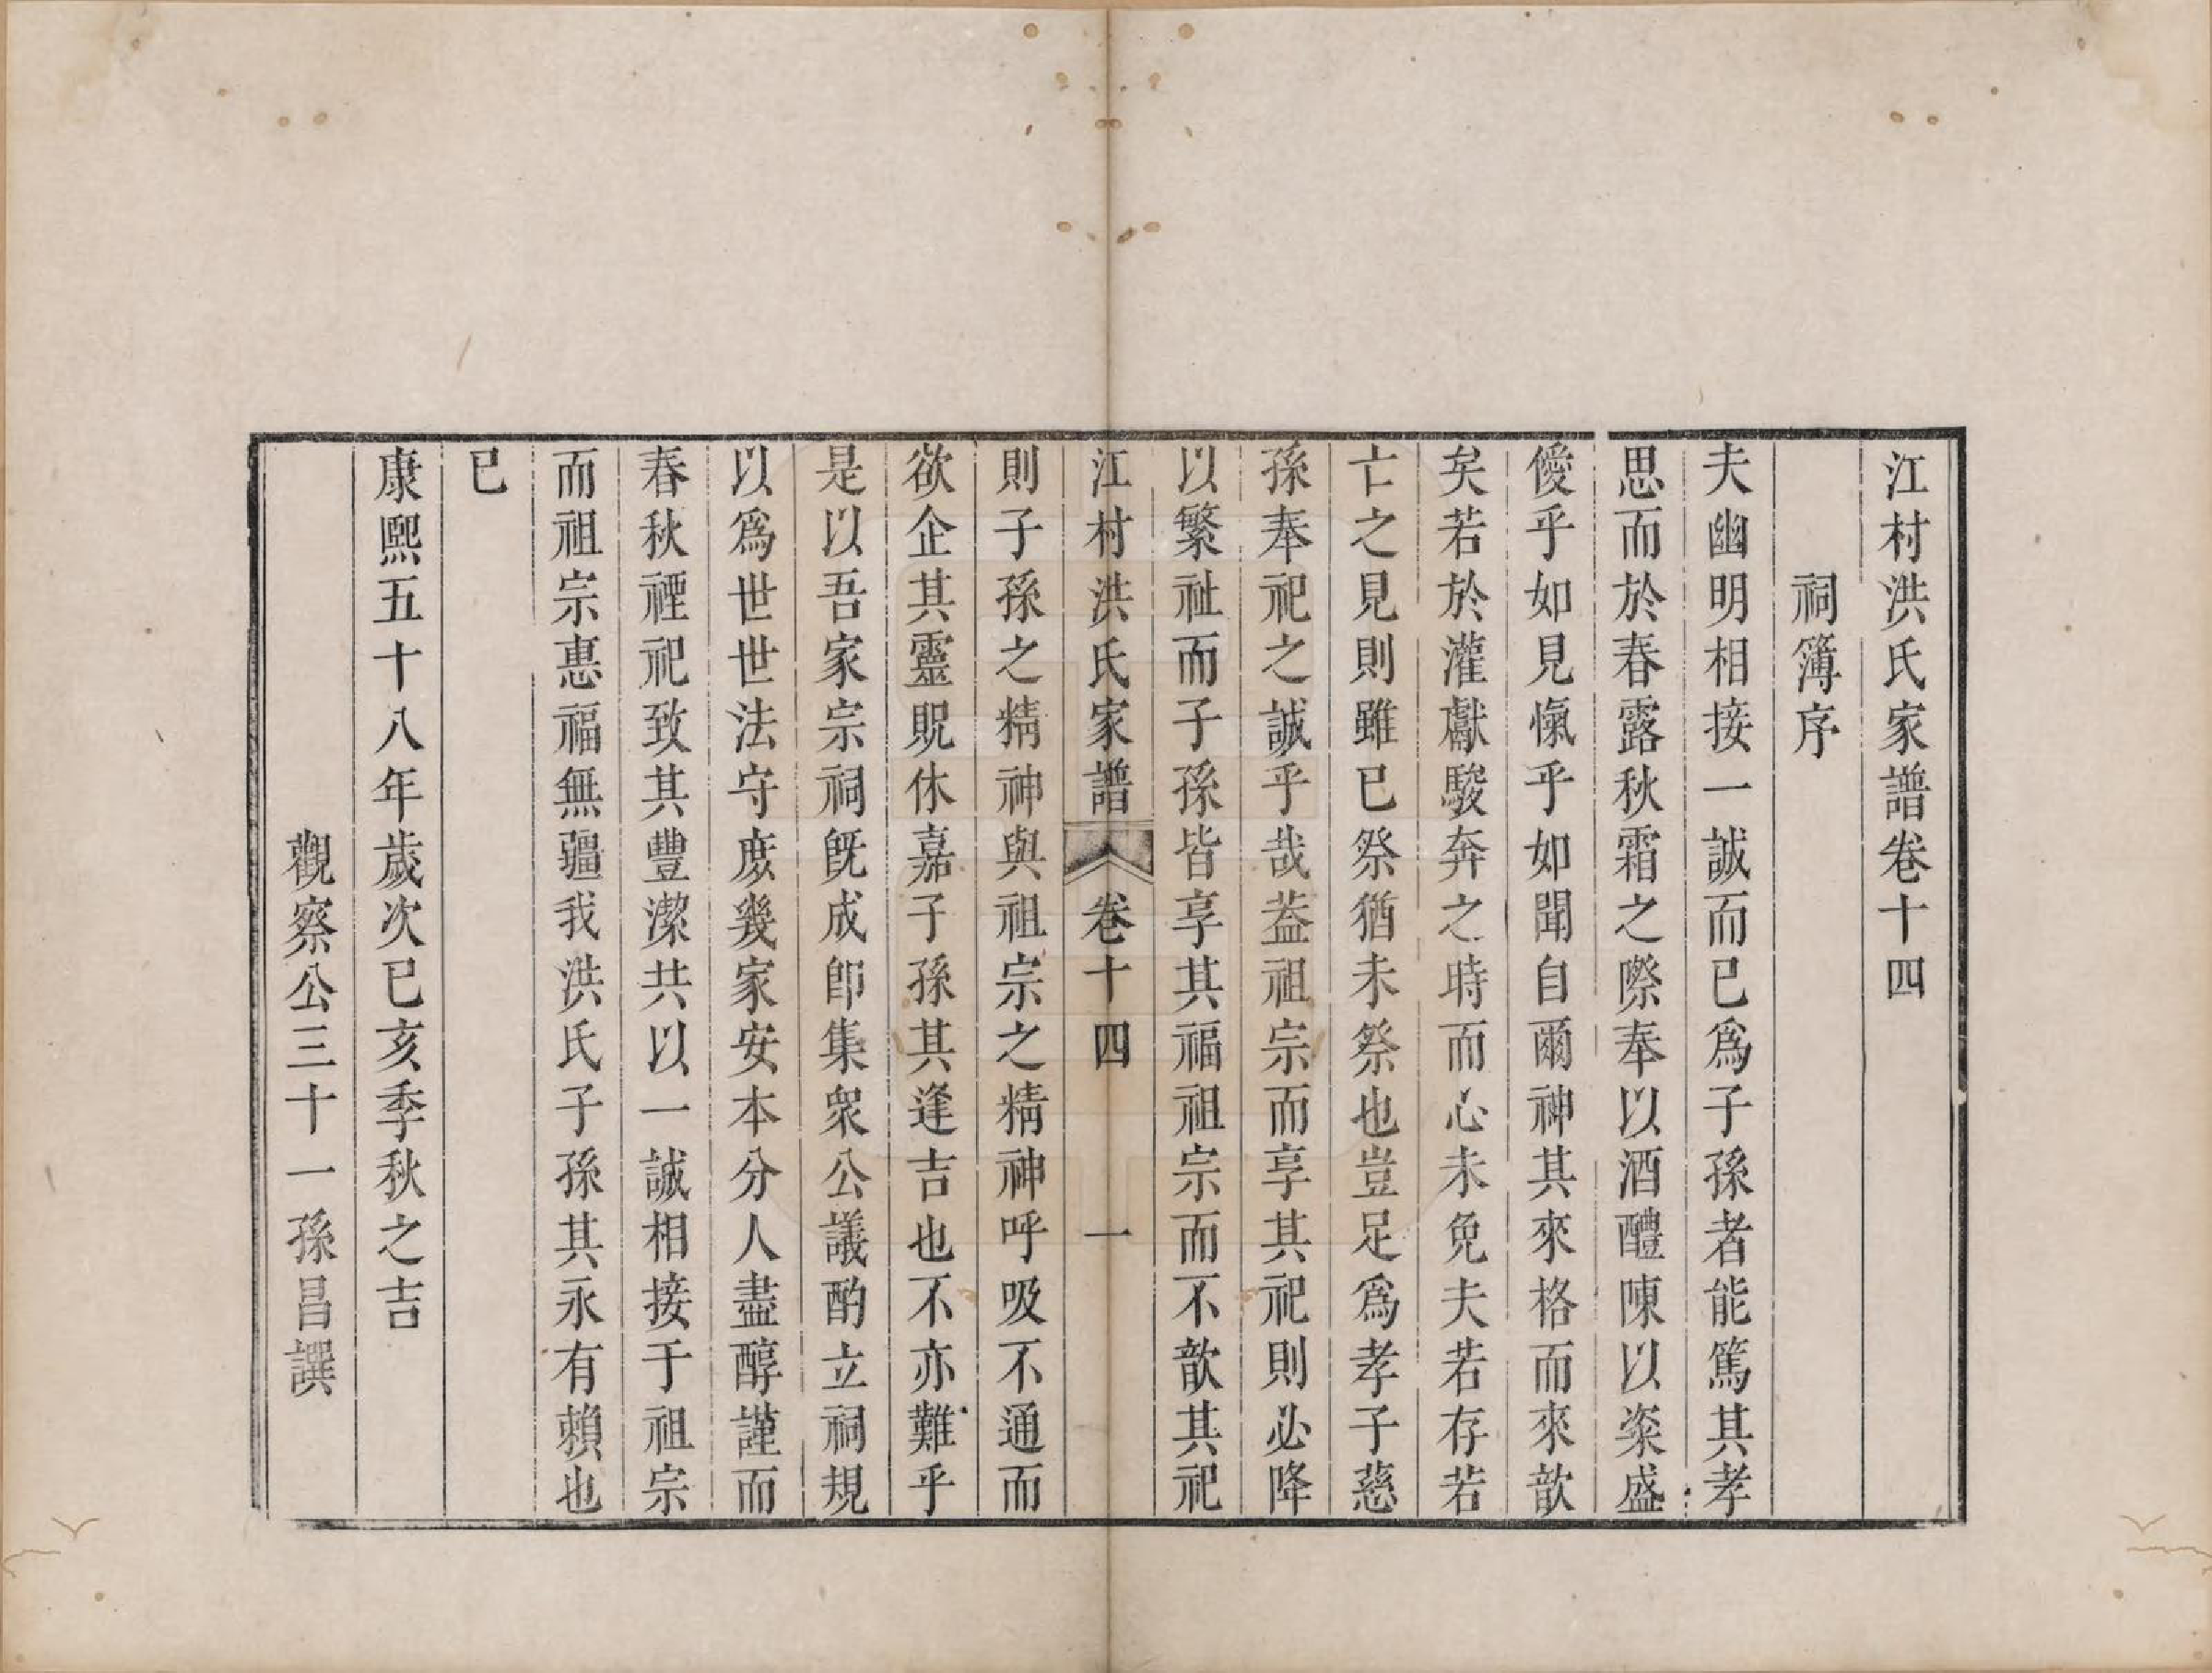 江村洪氏家譜卷十四
祠簿序
夫幽明相接一誠而已爲子孫者能篤其孝
思而於春露秋霜之際奉以酒醴陳以粢盛
僾乎如見愾乎如聞自爾神其來格而來歆
矣若於灌獻駿奔之時而心未免夫若存若
亡之見則雖已祭猶未祭也豈足爲孝子慈
孫奉祀之誠乎哉葢祖宗而享其祀則必降
以繁祉而子孫皆享其福祖宗而不歆其祀
江村洪氏家譜 卷十四 一
則子孫之精神與祖宗之精神呼吸不通而
欲企其靈貺休嘉子孫其逢吉也不亦難乎
是以吾家宗祠旣成卽集衆公議酌立祠規
以爲世世法守庻幾家安本分人盡醇謹而
春秋禋祀致其豐潔共以一誠相接于祖宗
而祖宗惠福無疆我洪氏子孫其永有賴也
已
康熙五十八年歲次已亥季秋之吉
觀察公三十一孫昌譔